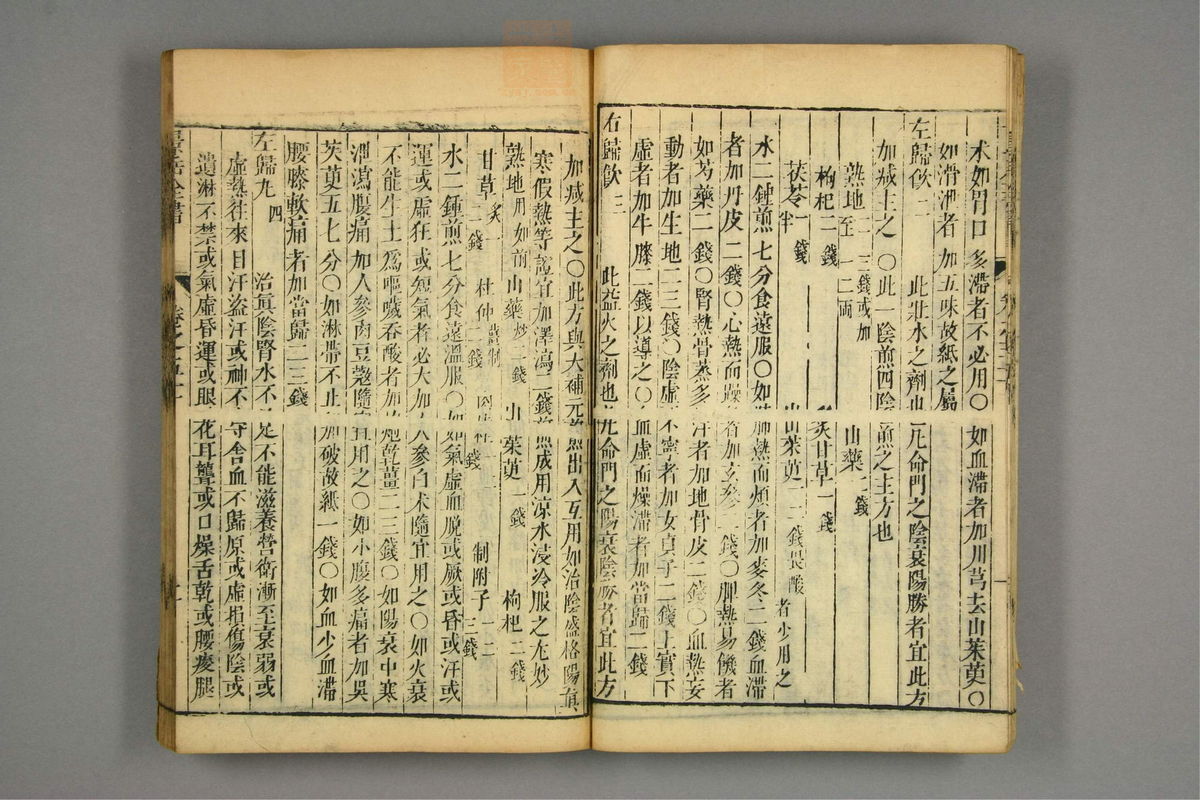 术如胃口多滯者不必用〇如血滯者加川芎去山茱萸〇
如滑泄者加五味故紙之屬
左歸飲二 此壯水之劑也凡命門之陰衰陽勝者宜此方
加減主之〇此一陰煎四陰煎之主方也
熟地二三錢或加至一二兩 山藥二錢
枸杞二錢 炙甘草一錢
茯苓一錢半 山茱萸一二錢畏酸者少用之
水二鍾煎七分食遠服〇如肺熱而煩者加麥冬二錢血滯
者加丹皮二錢〇心熱而躁者加玄參二錢〇脾熱易饑者
加芍藥二錢〇腎熱骨蒸多汗者加地骨皮二錢〇血熱妄
動者加生地二三錢〇陰虛不寧者加女貞子二錢上實下
虛者加牛膝二錢以導之〇血虛而燥滯者加當歸二錢
右歸飲三 此益火之劑也凡命門之陽衰陰勝者宜此方
加減主之〇此方與大補元煎出入互用如治陰盛格陽眞
寒假熱等證宜加澤瀉二錢煎成用涼水浸冷服之尤妙
熟地用如前 山藥炒二錢 山茱萸一錢 枸杞二錢
甘草炙一二錢 杜仲薑製二錢 肉桂一二錢 制附子一二三錢
水二鍾煎七分食遠溫服〇如氣虛血脫或厥或昏或汗或
運或虛狂或短氣者必大加人參白术隨宜用之〇如火衰
不能生土爲嘔噦吞酸者加炮乾薑二三錢〇如陽衰中寒
泄瀉腹痛加人參肉豆蔻隨宜用之〇如小腹多痛者加吳
茱萸五七分〇如淋帶不止加破故紙一錢〇如血少血滯
腰膝軟痛者加當歸二三錢
左歸丸四 治眞陰腎水不足不能滋養營衛漸至衰弱或
虛熱往來自汗盜汗或神不守舍血不歸原或虛損傷陰或
遺淋不禁或氣虛昏運或眼花耳聾或口燥舌乾或腰痠腿
景岳全書 卷之五十一